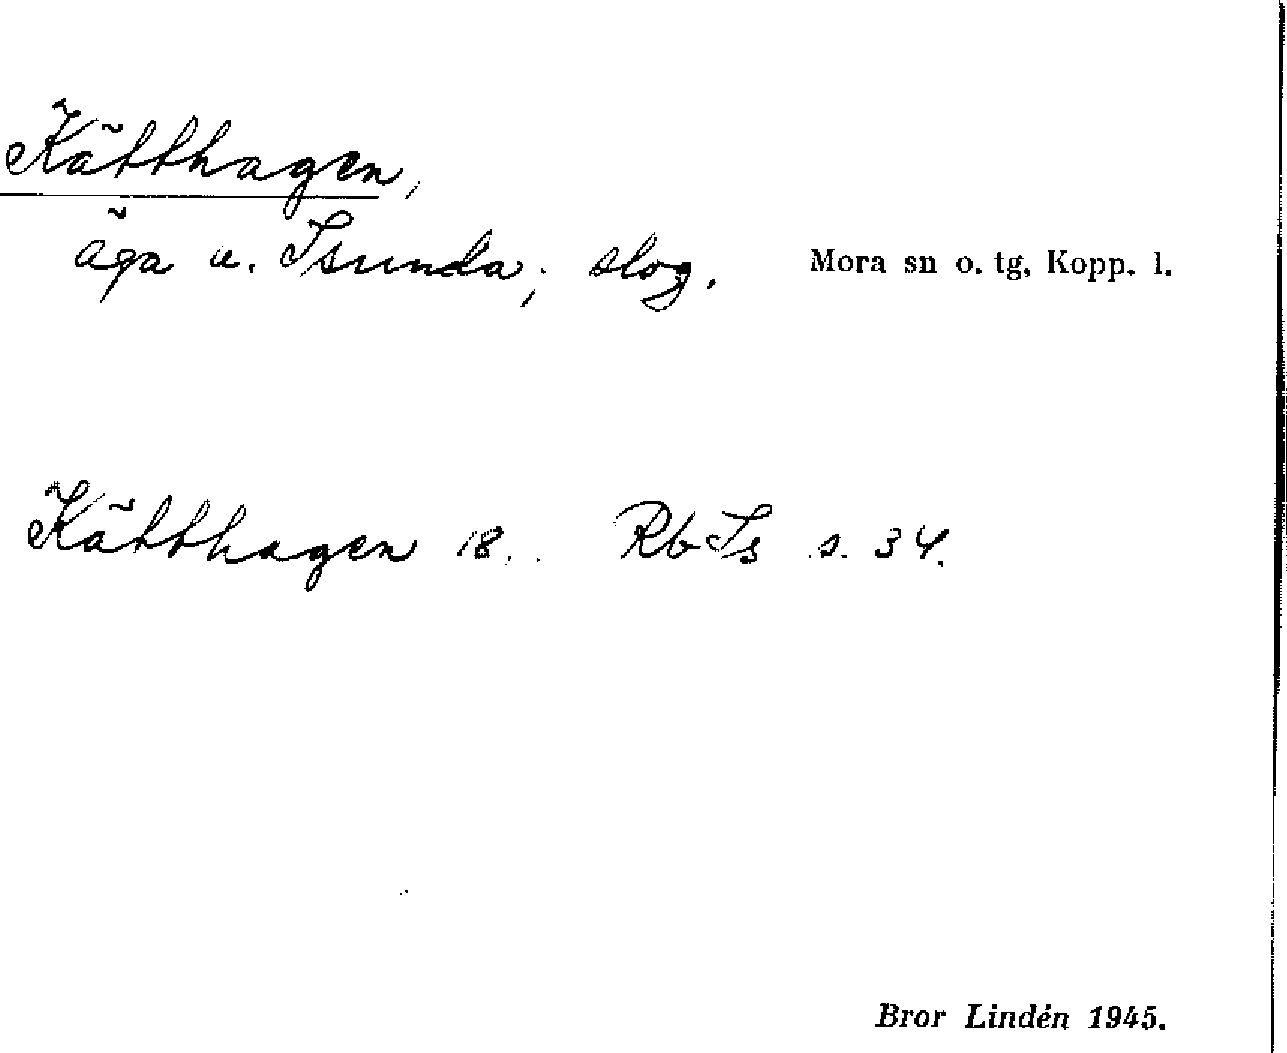 Kätthagen,
äga u. Isunda; slog. Mora sn o. tg, Kopp. l.
Kätthagen 18. Rb Is s. 34.
Bror Lindén 1945.